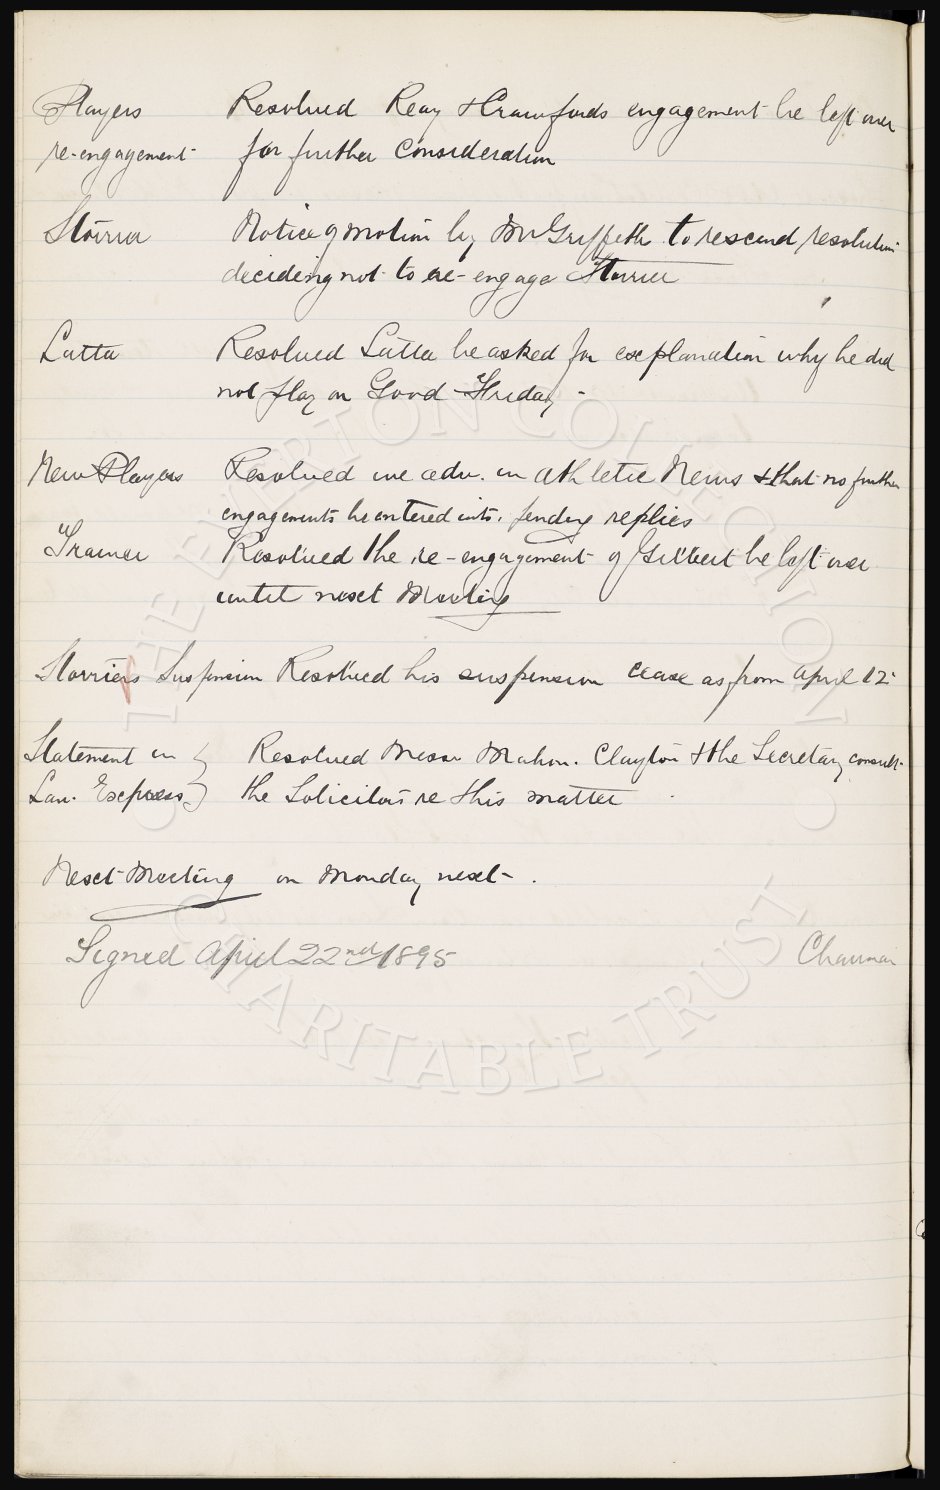 Players Resolved Reay & Crawfords engagement be left over
re-engagement for further consideration
Storrier Notice of motion by Mr Griffith to rescind resolution
deciding not to re-engage Storrier
Latta Resolved Latta be asked for explanation why he did
not play on Good Friday -
New Players Resolved we adv. in Athletic News & that no further
engagements be entered into, pending replies
Trainer Resolved the re-engagement of Gilbert be left over
until next Meeting
Storriers Suspension Resolved his suspension cease as from April 12
Statement in } Resolved Messrs Mahon. Clayton & the Secretary consult
Lan. Express } the Solicitors re this matter
Next Meeting on Monday next.
Signed April 22nd 1895 Chairman
THE EVERTON COLLECTION
CHARITABLE TRUST